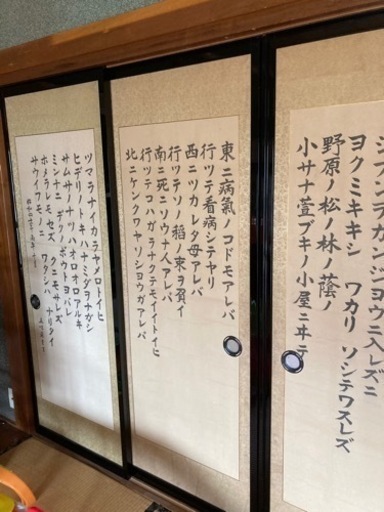 ジブンヲカンジョウニ入レズニ
ヨクミキキシ ワカリ ソシテワスレズ
野原ノ松ノ林ノ蔭ノ
小サナ萱ブキノ小屋ニヰテ
東ニ病氣ノコドモアレバ
行ツテ看病シテヤリ
西ニツカレタ母アレバ
行ツテソノ稲ノ束ヲ負ヒ
南ニ死ニソウナ人アレバ
行ツテコハガラナクテモイイトイヒ
北ニケンクワヤソシヨウガアレバ
ツマラナイカラヤメロトイヒ
ヒデリノトキハナミダヲナガシ
サムサノナツハオロオロアルキ
ミンナニ デクノボウトヨバレ
ホメラレモセズ クニモサレズ
サウイフモノニ ワタシハ ナリタイ